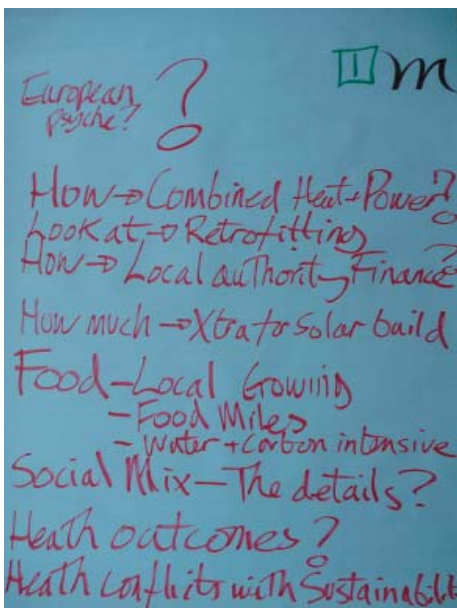 1 m
European ?
psyche?
How → Combined Heat + Power?
Look at → Retrofitting
How → Local authority Finance?
How much → Xtra for Solar build
Food – Local Growing
– Food Miles
– Water + Carbon intensive
Social Mix – The details?
Heath outcomes?
Heath conflicts with Sustainabilit